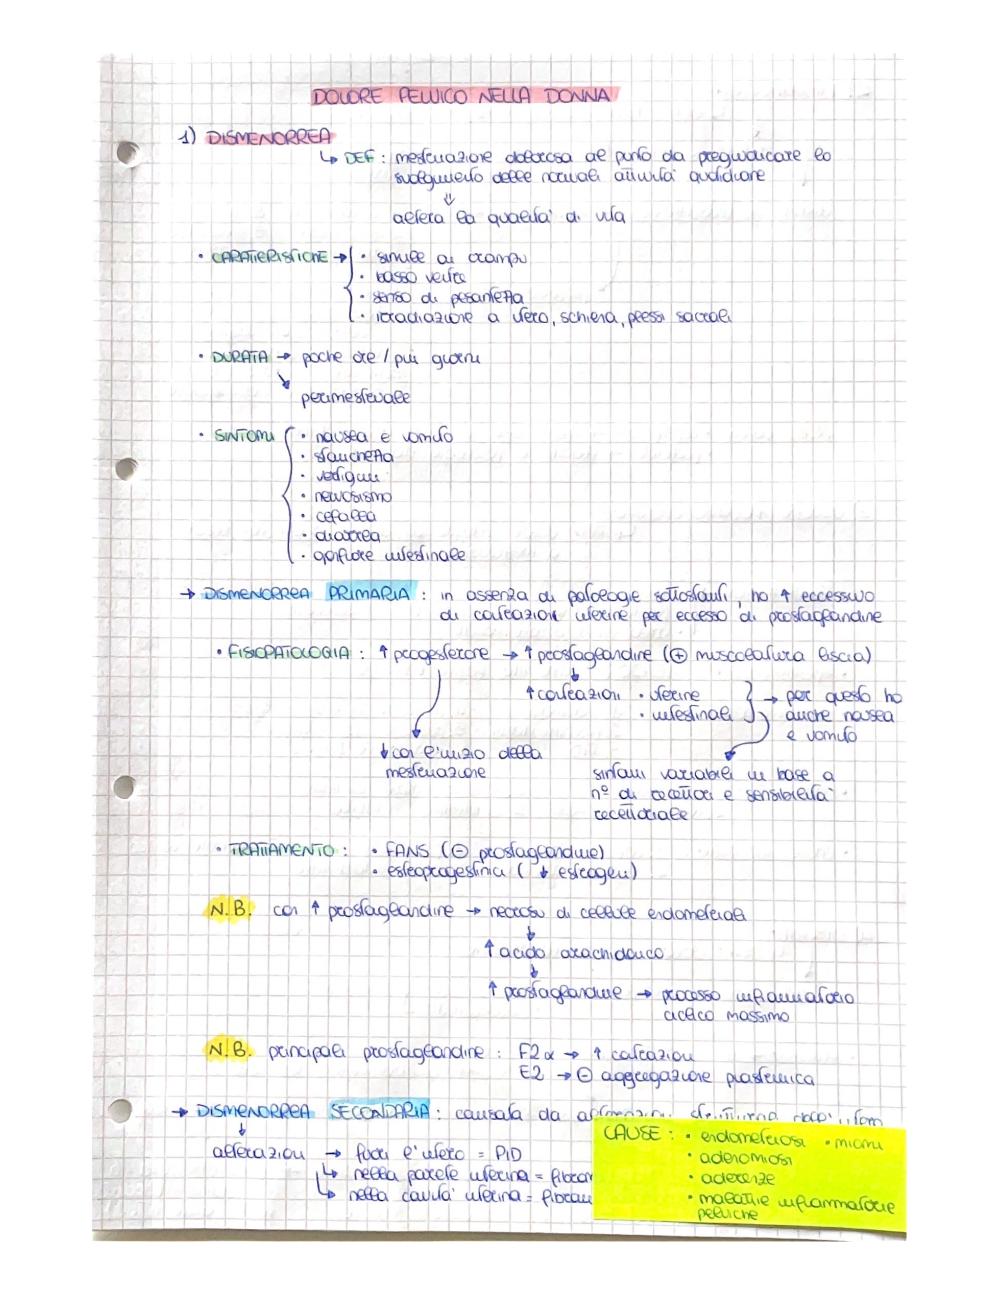 DOLORE PELVICO NELLA DONNA
1) DISMENORREA
↳ DEF : mestruazione dolorosa al punto da pregiudicare lo
svolgimento delle normali attività quotidiane
⇓
altera la qualità di vita
• CARATTERISTICHE → • simile ai crampi
• basso ventre
• senso di pesantezza
• irradiazione a utero, schiena, plessi sacrali
• DURATA → poche ore / più giorni
↘
perimestruale
• SINTOMI • nausea e vomito
• stanchezza
• vertigini
• nervosismo
• cefalea
• diarrea
• gonfiore intestinale
→ DISMENORREA PRIMARIA : in assenza di patologie sottostanti, ho ↑ eccessivo
di contrazioni uterine per eccesso di prostaglandine
• FISIOPATOLOGIA : ↑ progesterone → ↑ prostaglandine (⊕ muscolatura liscia)
↓
↑ contrazioni • uterine → per questo ho
• intestinali anche nausea
e vomito
↓ con l'inizio della
mestruazione
sintomi variabili in base a
nº di recettori e sensibilità
recettoriale
• TRATTAMENTO : • FANS (⊖ prostaglandine)
• estroprogestinici ( ↓ estrogeni)
N.B. con ↑ prostaglandine → necrosi di cellule endometriali
↓
↑ acido arachidonico
↓
↑ prostaglandine → processo infiammatorio
ciclico massimo
N.B. principali prostaglandine : F2α → ↑ contrazioni
E2 → ⊖ aggregazione piastrinica
→ DISMENORREA SECONDARIA : causata da
↓
alterazioni → fuori l'utero = PID
↳ nella parete uterina =
↳ nella cavità uterina =
CAUSE : • endometriosi • miomi
• adenomiosi
• aderenze
• malattie infiammatorie
pelviche